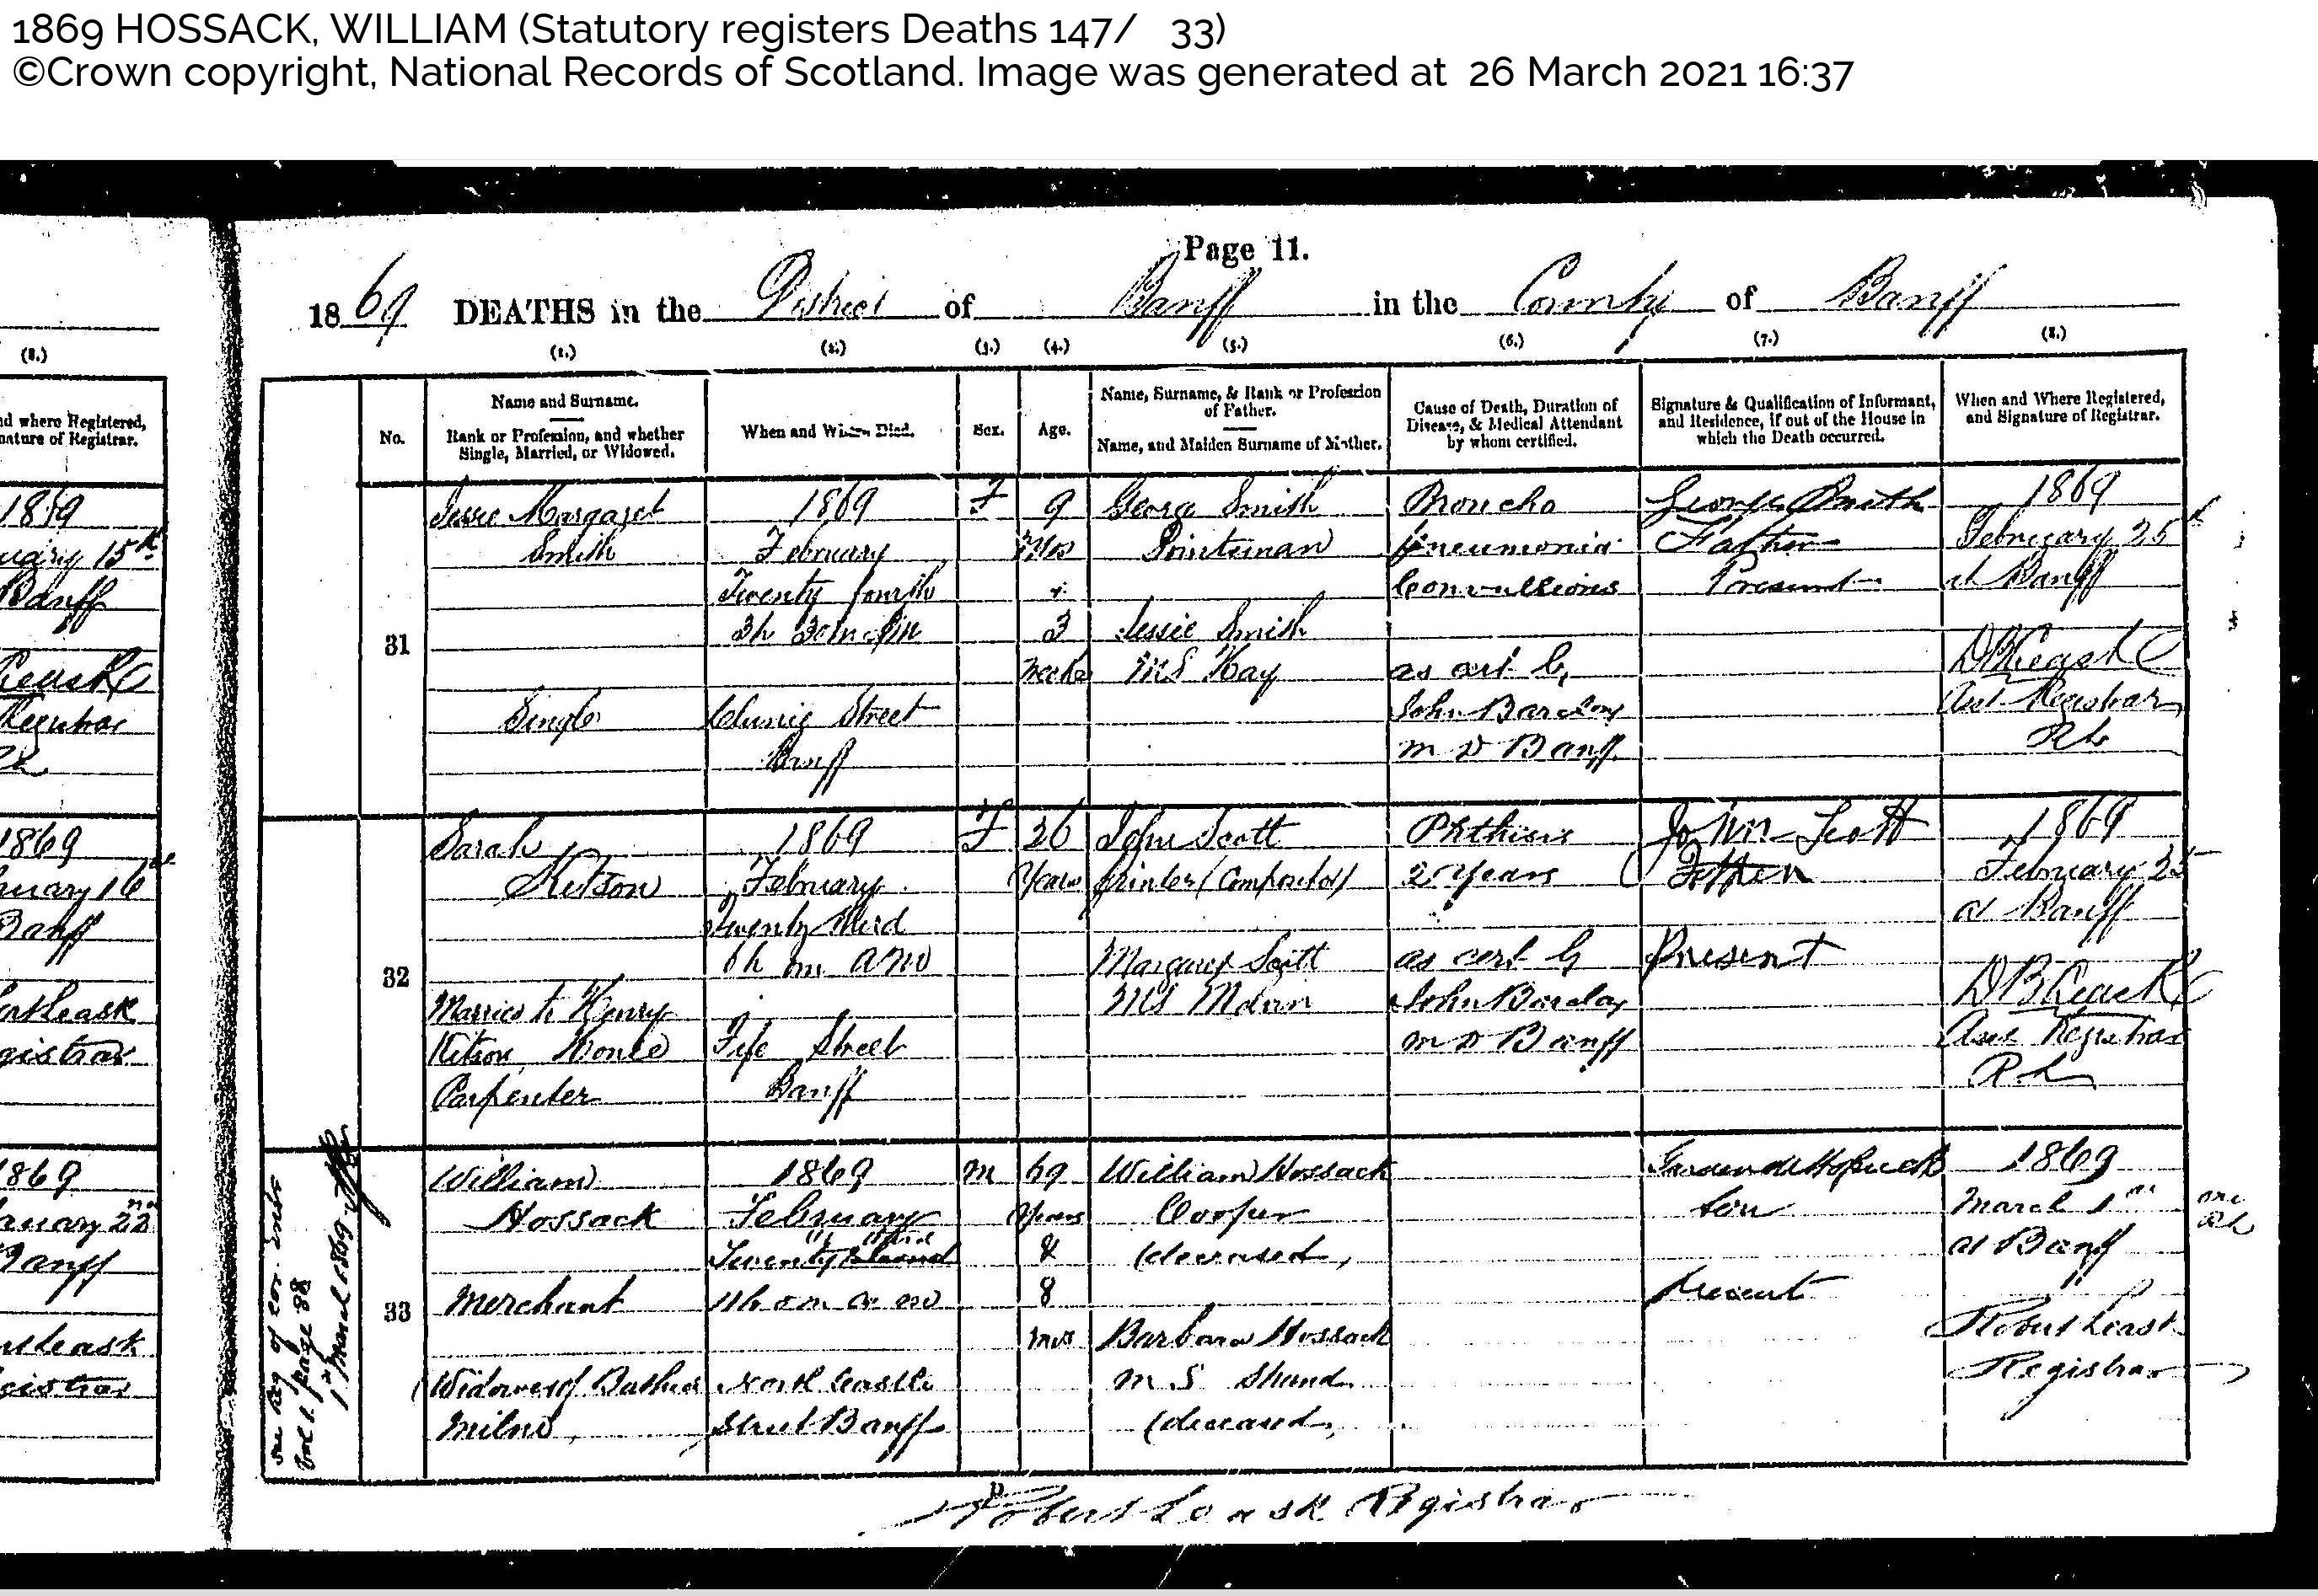 1869 HOSSACK, WILLIAM (Statutory registers Deaths 147/ 33)
©Crown copyright, National Records of Scotland. Image was generated at 26 March 2021 16:37
Page 11.
1869 DEATHS in the District of Banff in the County of Banff
(8.)
nd where Registered,
nature of Registrar.
1869
uary 15th
Banff
Leask
Registrar
1869
nuary 16
Banff
Leask
gistrar
1869
anuary 22nd
Banff
Leask
gistrar
(1.) (2.) (3.) (4.) (5.) (6.) (7.) (8.)
No.
Name and Surname.
Rank or Profession, and whether
Single, Married, or Widowed.
When and Where Died.
Sex.
Age.
Name, Surname, & Rank or Profession
of Father.
Name, and Maiden Surname of Mother.
Cause of Death, Duration of
Disease, & Medical Attendant
by whom certified.
Signature & Qualification of Informant,
and Residence, if out of the House in
which the Death occurred.
When and Where Registered,
and Signature of Registrar.
31
Jessie Margaret
Smith
Single
1869
February
Twenty fourth
3h 30m PM
Clunie Street
Banff
F
9
Mos
&
3
weeks
George Smith
Pointsman
Jessie Smith
MS Hay
Broncho
pneumonia
Convulsions
as cert by
John Barclay
M D Banff
George Smith
Father
Present
1869
February 25th
at Banff
D B Leask
Asst Registrar
RL
32
Sarah
Kitson
Married to Henry
Kitson House
Carpenter
1869
February
Twenty third
6h m AM
Fife Street
Banff
F
26
Years
John Scott
Printer (Compositor)
Margaret Scott
MS
Phthisis
2 Years
as cert by
John Barclay
M D Banff
John Scott
Father
Present
1869
February 25
at Banff
D B Leask
Asst Registrar
R L
see Reg of cor. ents
vol 1. page 88
1st March 1869
33
William
Hossack
Merchant
(Widower of
Milne
1869
February
third
Twenty
11h 0m a m
North Castle
Street Banff
M
69
Years
&
8
mos
William Hossack
Cooper
(deceased)
Barbara Hossack
m S Shand
(deceased)
son
present
1869
March 1st
at Banff
Robert Leask
Registrar
RL
Robert Leask Registrar